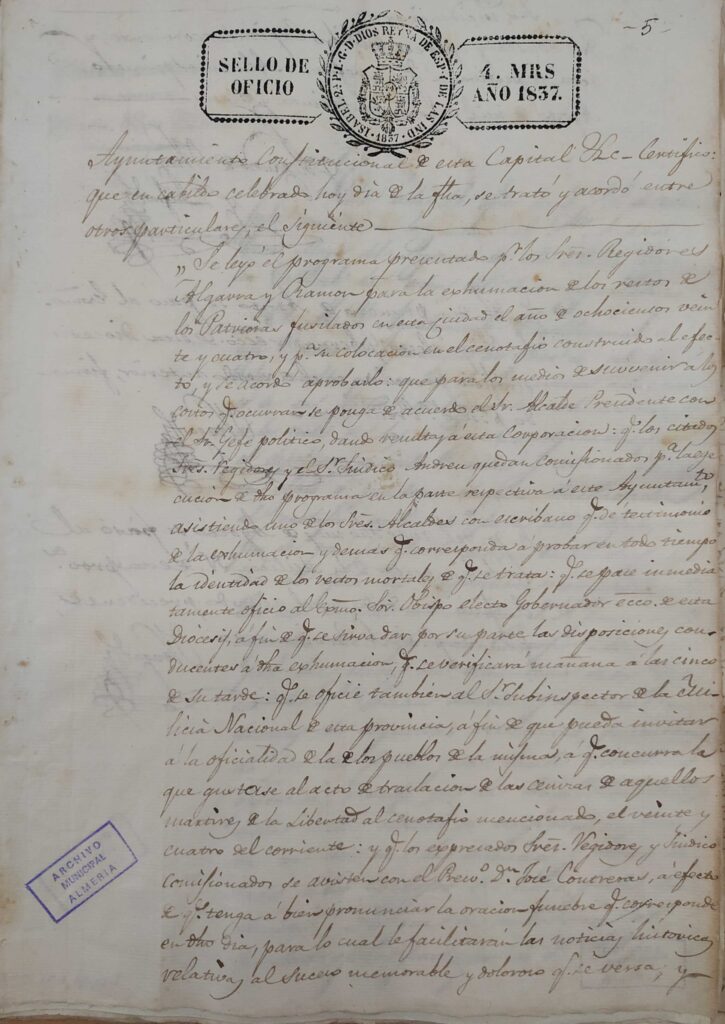 - 5
SELLO DE OFICIO
ISABEL 2ª P. L. G. D. DIOS REYNA DE ESP. Y DE LAS IND. 1837
4. MRS AÑO 1837.
Ayuntamiento Constitucional de esta Capital &c - Certifico:
que en cabildo celebrado hoy dia de la fha, se trató y acordó entre
otros particulares, el siguiente
„ Se leyó el programa presentado pr. los Sres. Regidores
Algarra y Ramon para la exhumacion de los restos de
los Patriotas fusilados en esta Ciudad el año de ochocientos vein
te y cuatro, y pa. su colocacion en el cenotafio construido al efec
tó, y se acordó aprobarlo: que para los medios de subvenir á los
costos q. ocurran se ponga de acuerdo el Sr. Alcalde Presidente con
el Sr. Gefe politico, dando resultas á esta Corporacion: q. los citados
Sres. Regidores y el Sr. Sindico Andreu quedan comisionados pa. la eje
cucion de dho programa en la parte respectiva á este Ayuntamto.,
asistiendo uno de los Sres. Alcaldes con escribano q. dé testimonio
de la exhumacion y demas q. corresponda á probar en todo tiempo
la identidad de los restos mortales de q. se trata: q. se pase inmedia
tamente oficio al Exmo. Sor. Obispo electo Gobernador ecco. de esta
Diócesis, á fin de q. se sirva dar por su parte las disposiciones con-
ducentes á dha exhumacion, q. se verificará mañana á las cinco
de su tarde: q. se oficie tambien al Sr. Subinspector de la Mi
licia Nacional de esta provincia, á fin de que pueda invitar
á la oficialidad de la de los pueblos de la misma, á q. concurra la
que gustase al acto de traslacion de las cenizas de aquellos
martires de la Libertad al cenotafio mencionado, el veinte y
cuatro del corriente: y q. los expresados Sres. Regidores y Sindico
comisionados se avisten con el Presbo. Dn. José Contreras, á efecto
de q. tenga á bien pronunciar la oracion funebre q. corresponde
en dho dia, para lo cual le facilitarán las noticias historicas
relativas al suceso memorable y doloroso q. se versa; y
ARCHIVO
MUNICIPAL
ALMERIA